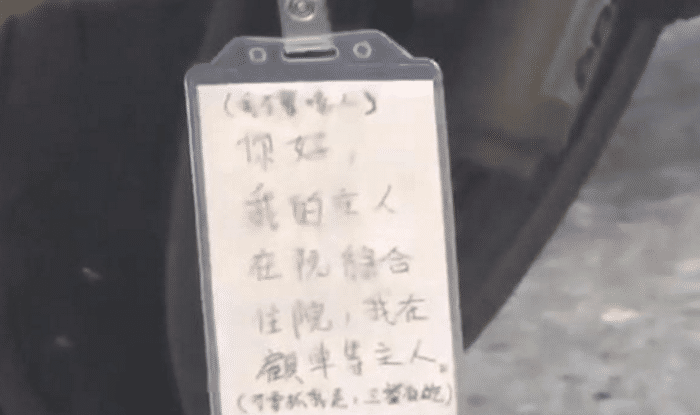 (我不會咬人)
你好，
我的主人
在阮綜合
住院，我在
顧車等主人。
(不要抓我走，三餐有吃)